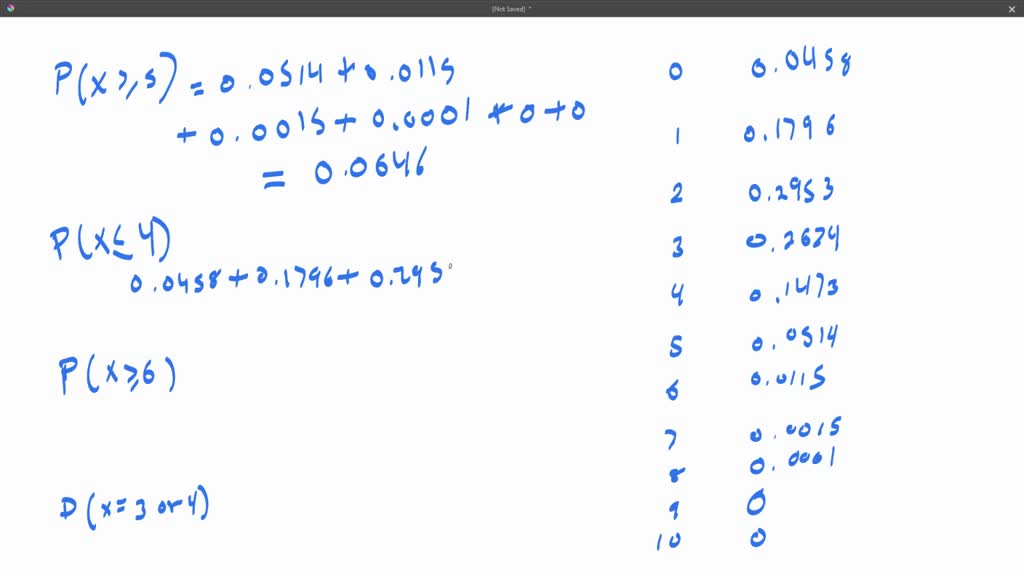 [Not Saved] *
P(x ≥ 5) = 0.0514 + 0.0115
+ 0.0015 + 0.0001 + 0 + 0
= 0.0646
P(x ≤ 4)
0.0458 + 0.1796 + 0.295
P(x ≥ 6)
P(x = 3 or 4)
0 0.0458
1 0.1796
2 0.2953
3 0.2624
4 0.1473
5 0.0514
6 0.0115
7 0.0015
8 0.0001
9 0
10 0